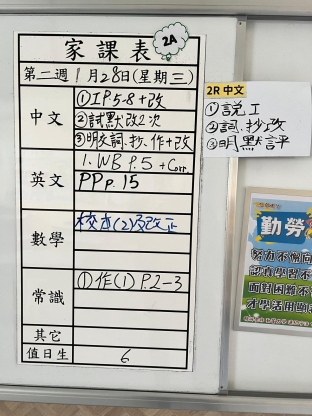 家課表
2A
第二週 1月28日(星期三)
中文
①工P.5-8+改
②試默改2次
③明友詞.抄.作+改
英文
1. WB P.5 + Corr.
PP p.15
數學
校本(2)及改正
常識
①作(1) P.2-3
其它
值日生
6
2R 中文
①説工
②詞.抄改
③明默評
勤勞
努力不懈
認真學習不
面對困難不
才學活用